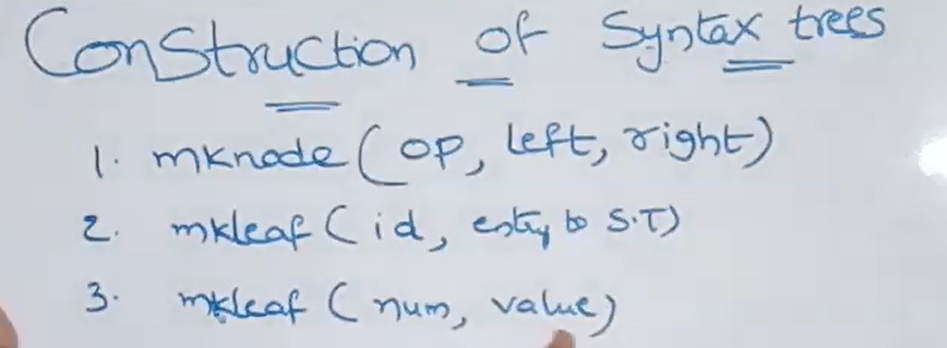 Construction of Syntax trees
1. mknode (op, left, right)
2. mkleaf (id, entry to S.T)
3. mkleaf (num, value)